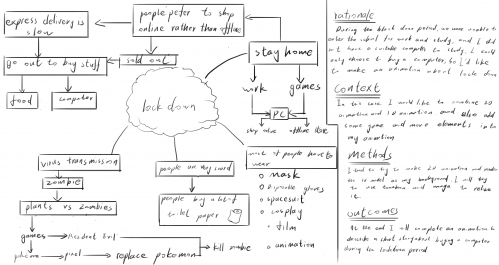 express delivery is
slow
people pefer to shop
online rather than offline
go out to buy stuff
sold out
stay home
food
computer
work
games
PC
lock down
virus transmission
zombie
plants vs zombies
games
pixel
replace pokemon
kill zombie
people are very scared
people buy a lot of
toilet paper
most of people have to
wear
mask
disposable gloves
spacesuit
cosplay
film
animation
rationale
During the block down period, we were unable to
enter the school for work and study, and I did
not have a suitable computer to study, I could
only choose to buy a computer, so I'd like
to make an animation about lock down
Context
In this case I would like to combine 3D
animation and 2D animation and also add
some game and more elements into
my animation
Methods
I will try to make 2D animation and
as my background. I will try
to use and to
it
outcomes
At the end I will complete an animation to
describe a short story about buying a computer
during the lockdown period